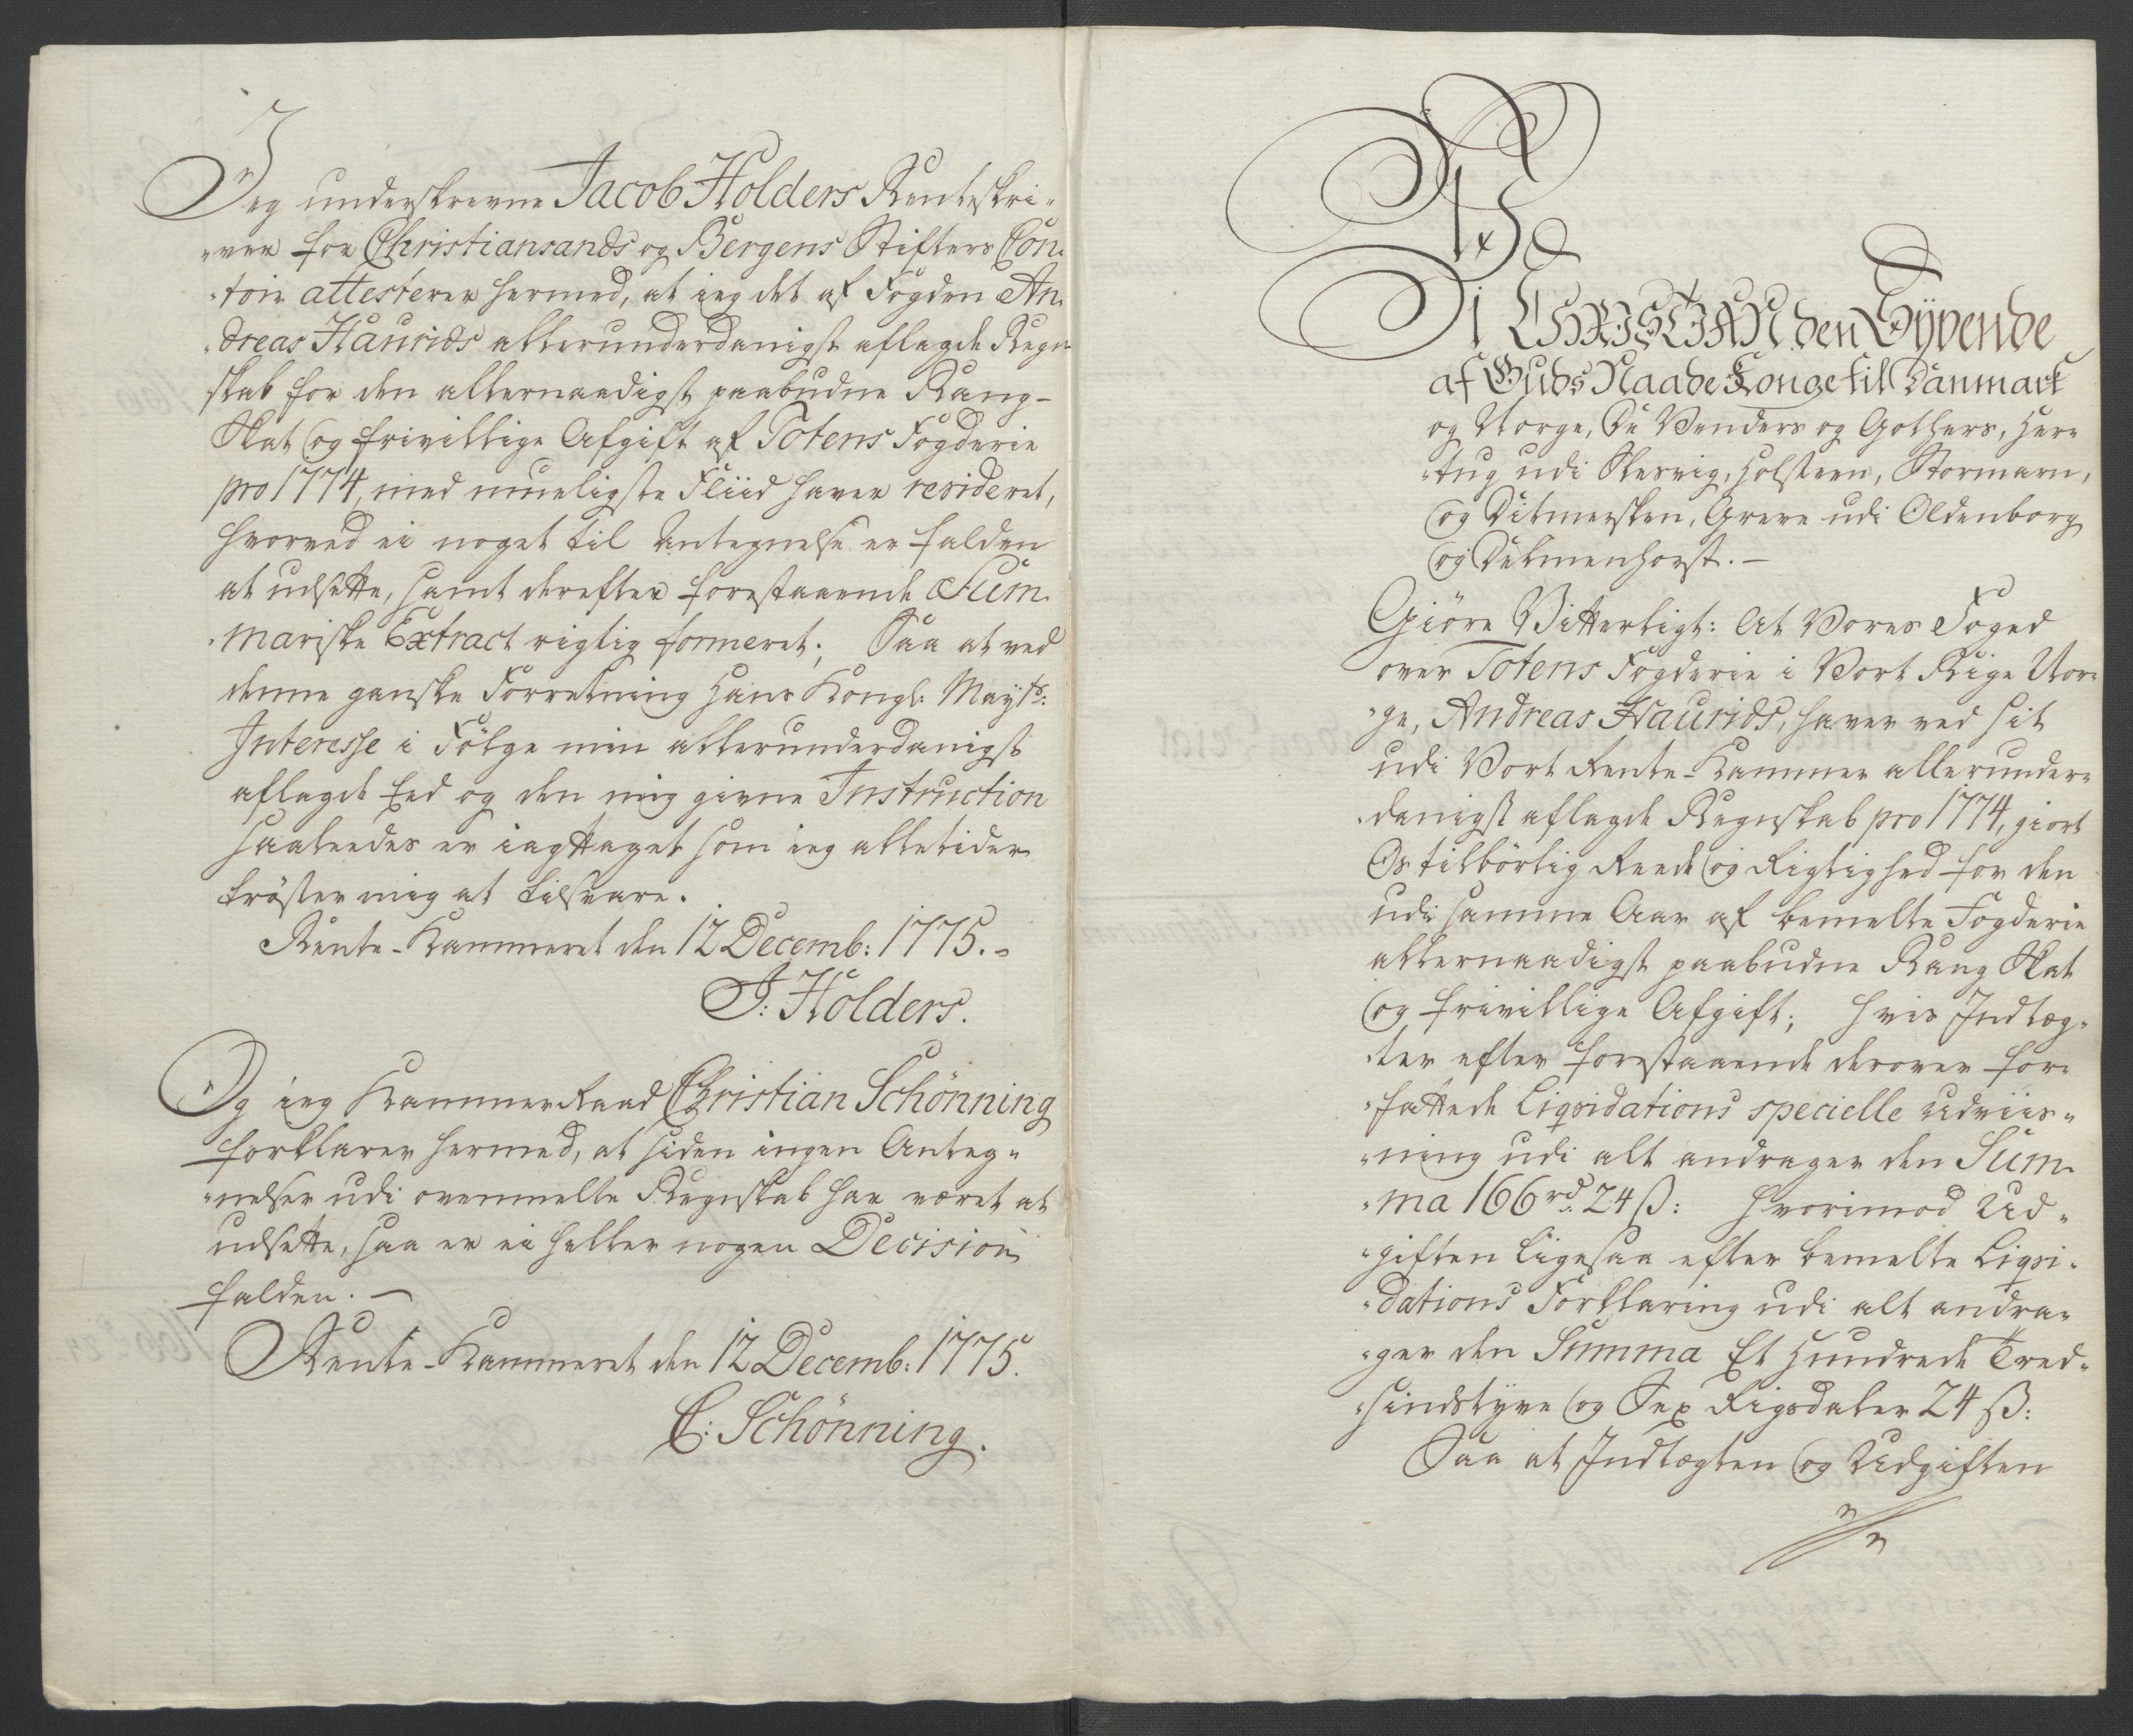 Jeg underskrevne Jacob Holders Renteskri-
-ver for Christiansands og Bergens Stifters Con-
-toir attesterer hermed, at ieg det af Fogden An-
-dreas Haurids allerunderdanigst aflagde Regn-
skab for den allernaadigst paabudne Rang-
Skat og frivillige Afgift af Totens Fogderie
pro 1774, med mueligste Fliid haver revideret,
hvorved ei noget til Antegnelse er falden
at udsætte, samt derefter forestaaende Sum-
-mariske Extract rigtig formeret; Saa at ved
denne ganske Forretning Hans Kongl: Mayts:
Interesse i Fölge min allerunderdanigst
aflagde Eed og den mig givne Instruction
saaleedes er iagttaget som ieg alletider
tröster mig at tilsvare.
Rente-Kammeret den 12 Decemb: 1775.
J: Holders.
Og ieg Kammer Raad Christian Schönning
forklarer hermed, at siden ingen Anteg-
-nelser udi ovenmelte Regnskab har været at
udsætte, saa er ei heller nogen Decision
falden. –
Rente-Kammeret den 12 Decemb: 1775.
C: Schönning.
Vi CHRISTIAN den Syvende
af Guds Naade Konge til Danmark
og Norge, De Venders og Gothers, Her-
-tug udi Slesvig, Holsteen, Stormarn,
og Ditmersken, Greve udi Oldenborg
og Delmenhorst. –
Giöre Vitterligt: At Vores Foged
over Totens Fogderie i Vort Rige Nor-
-ge, Andreas Haurids, haver ved sit
udi Vort Rente-Kammer allerunder-
-danigst aflagde Regnskab pro 1774, giort
Os tilbörlig Reede og Rigtighed for den
udi samme Aar af bemelte Fogderie
allernaadigst paabudne Rang Skat
og frivillige Afgift; Hvis Indtæg-
-ter efter forestaaende derover for-
-fattede Liqvidations specielle Udviis-
-ning udi alt andrager den Sum-
-ma 166 rd: 24 ß: Hvorimod Ud-
-giften ligesaa efter bemelte Liqvi-
-dations Forklaring udi alt andra-
-ger den Summa Et Hundrede Tred-
-sindstyve og Sex Rigsdaler 24 ß:
Saa at Indtægten og Udgiften